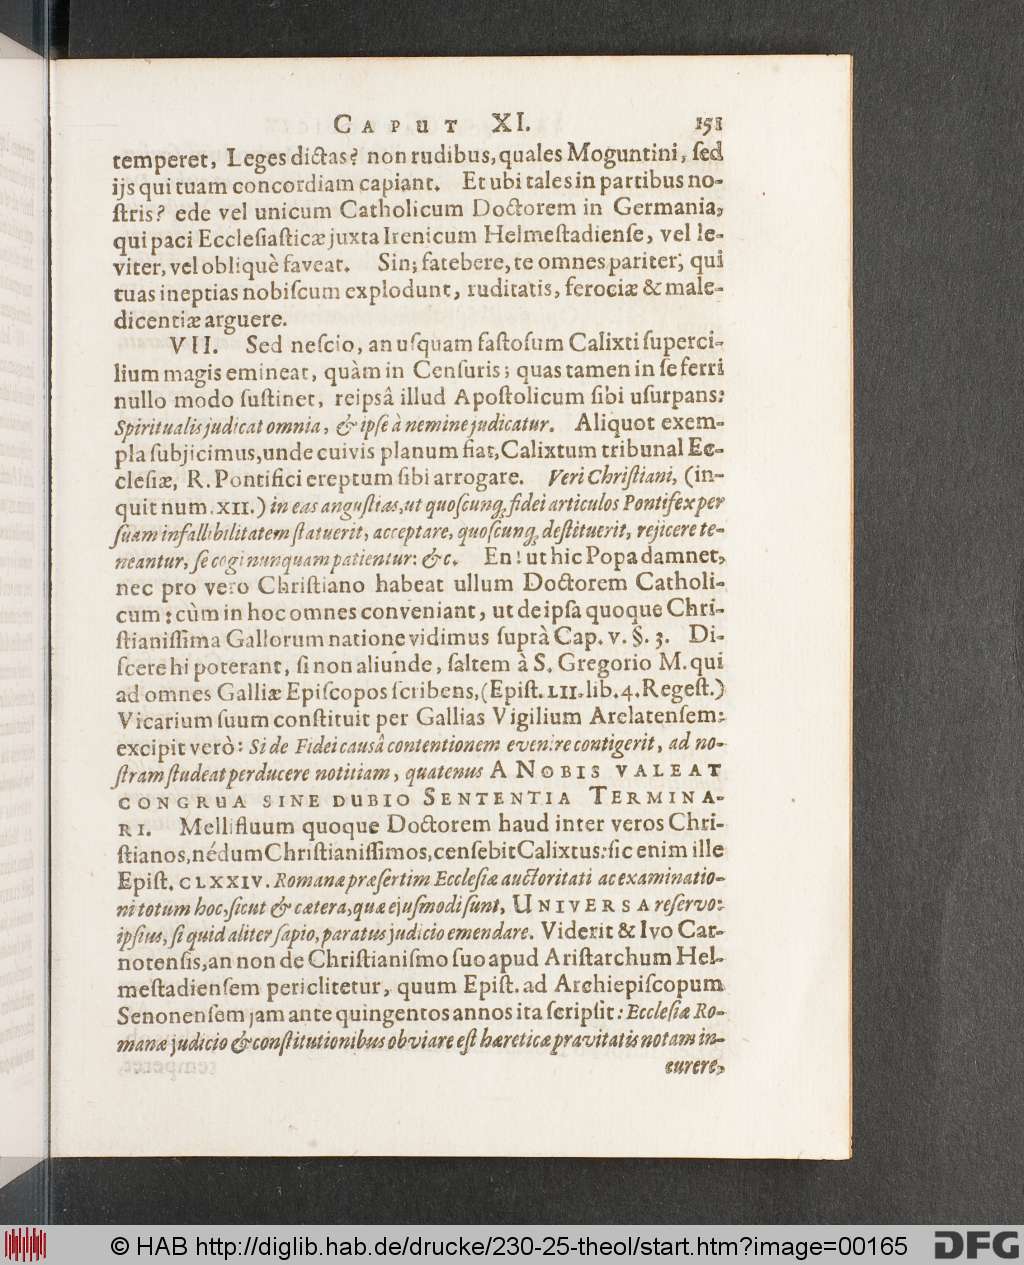 CAPUT XI. 151
temperet, Leges dictas? non rudibus, quales Moguntini, ſed
ijs qui tuam concordiam capiant. Et ubi tales in partibus no-
ſtris? ede vel unicum Catholicum Doctorem in Germania,
qui paci Eccleſiaſticæ juxta Irenicum Helmeſtadienſe, vel le-
viter, vel obliquè faveat. Sin; fatebere, te omnes pariter, qui
tuas ineptias nobiſcum explodunt, ruditatis, ferociæ & male-
dicentiæ arguere.
VII. Sed neſcio, an uſquam faſtoſum Calixti ſuperci-
lium magis emineat, quàm in Cenſuris; quas tamen in ſe ferri
nullo modo ſuſtinet, reipsâ illud Apoſtolicum ſibi uſurpans:
Spiritualis judicat omnia, & ipſe à nemine judicatur. Aliquot exem-
pla ſubjicimus, unde cuivis planum fiat, Calixtum tribunal Ec-
cleſiæ, R. Pontifici ereptum ſibi arrogare. Veri Chriſtiani, (in-
quit num. XII.) in eas anguſtias, ut quoſcunq; fidei articulos Pontifex per
ſuam infallibilitatem ſtatuerit, acceptare, quoſcunq; deſtituerit, rejicere te-
neantur, ſe cogi nunquam patientur: &c. En! ut hic Popa damnet,
nec pro vero Chriſtiano habeat ullum Doctorem Catholi-
cum: cùm in hoc omnes conveniant, ut de ipſa quoque Chri-
ſtianiſſima Gallorum natione vidimus ſuprà Cap. v. §. 3. Di-
ſcere hi poterant, ſi non aliunde, ſaltem à S. Gregorio M. qui
ad omnes Galliæ Epiſcopos ſcribens, (Epiſt. LII. lib. 4. Regeſt.)
Vicarium ſuum conſtituit per Gallias Vigilium Arelatenſem:
excipit verò: Si de Fidei causâ contentionem evenire contigerit, ad no-
ſtram ſtudeat perducere notitiam, quatenus A NOBIS VALEAT
CONGRUA SINE DUBIO SENTENTIA TERMINA-
RI. Mellifluum quoque Doctorem haud inter veros Chri-
ſtianos, nédum Chriſtianiſſimos, cenſebit Calixtus: ſic enim ille
Epiſt. CLXXIV. Romanæ præſertim Eccleſiæ auctoritati ac examinatio-
ni totum hoc, ſicut & cætera, quæ ejuſmodi ſunt, UNIVERSA reſervo:
ipſius, ſi quid aliter ſapio, paratus judicio emendare. Viderit & Ivo Car-
notenſis, an non de Chriſtianiſmo ſuo apud Ariſtarchum Hel-
meſtadienſem periclitetur, quum Epiſt. ad Archiepiſcopum
Senonenſem jam ante quingentos annos ita ſcripſit: Eccleſiæ Ro-
manæ judicio & conſtitutionibus obviare eſt hæreticæ pravitatis notam in-
currere,
© HAB http://diglib.hab.de/drucke/230-25-theol/start.htm?image=00165
DFG